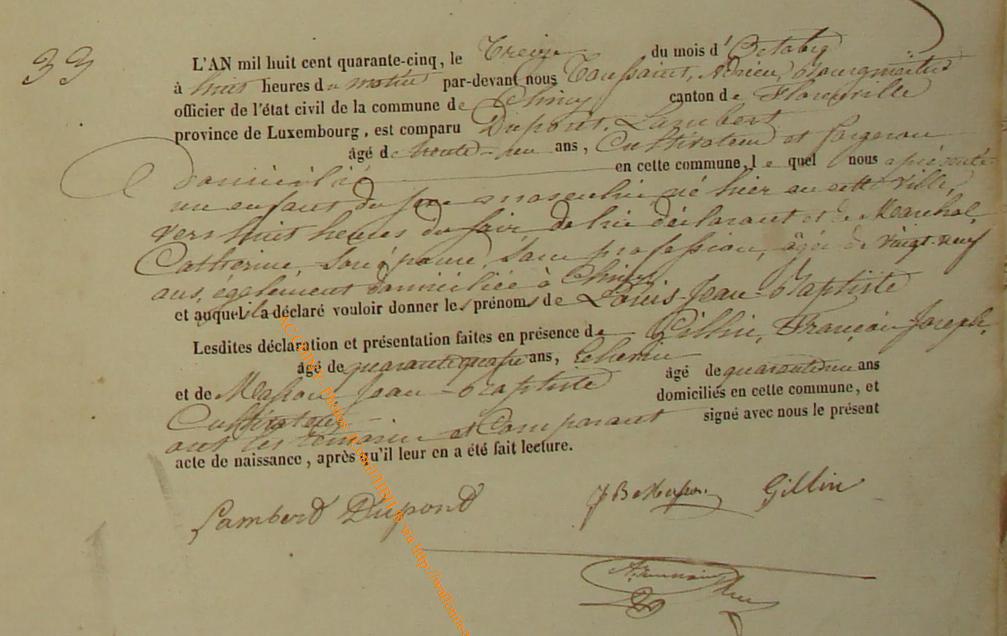 33
L'AN mil huit cent quarante-cinq, le Treize du mois d' Octobre
à huit heures du matin par-devant nous Toussaint, Adrien, Bourgmestre
officier de l'état civil de la commune de Chiny canton de Florenville
province de Luxembourg, est comparu Dupont, Lambert
âgé de trente-un ans, Cultivateur et forgeron
domicilié en cette commune, le quel nous a présenté
un enfant du sexe masculin né hier en cette ville,
vers huit heures du soir de lui déclarant et de Maréchal,
Catherine, son épouse, sans profession, âgée de vingt-neuf
ans, également domiciliée à Chiny
et auquel il a déclaré vouloir donner les prénoms de Louis-Jean-Baptiste
Lesdites déclaration et présentation faites en présence de Gillin, François-Joseph,
âgé de quarante quatre ans,
et de Masson Jean-Baptiste âgé de quarante un ans
Cultivateur domiciliés en cette commune, et
ont les témoins et Comparant signé avec nous le présent
acte de naissance, après qu'il leur en a été fait lecture.
Lambert Dupond JB Masson Gillin